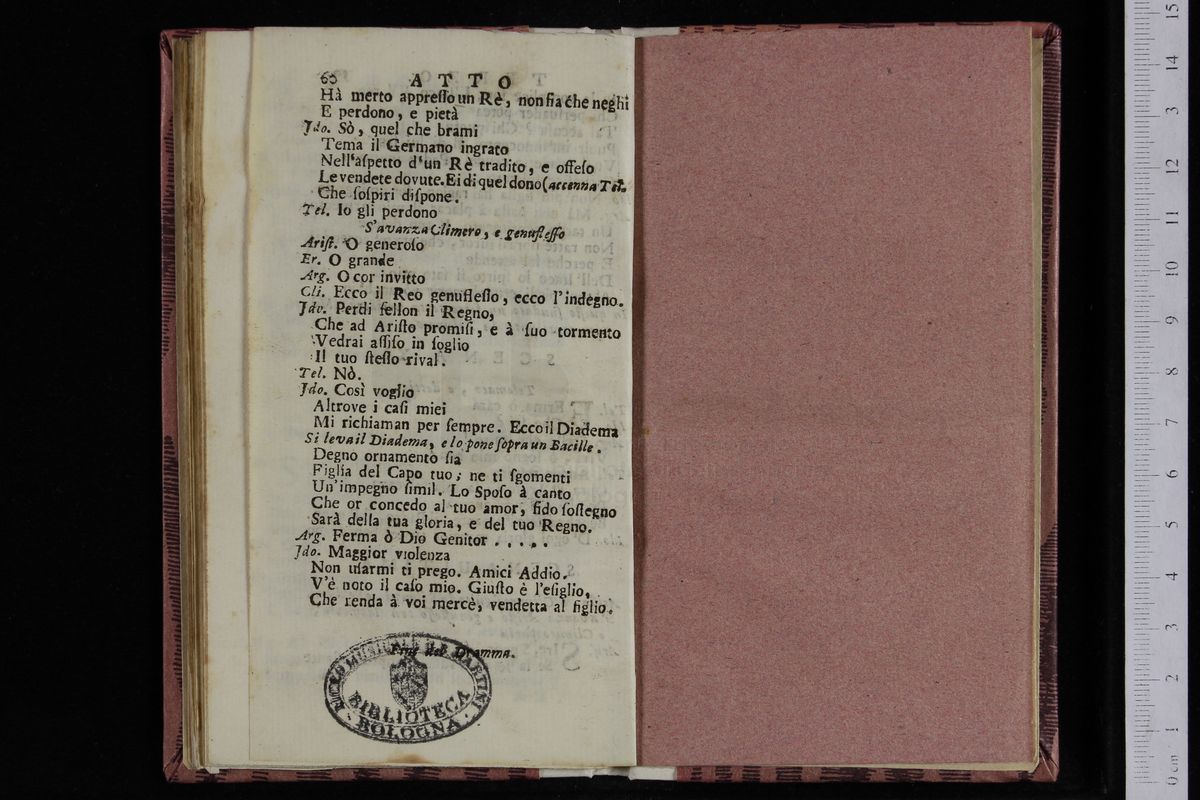 60 ATTO
Hà merto appreſſo un Rè, non ſia che neghi
E perdono, e pietà
Jdo. Sò, quel che brami
Tema il Germano ingrato
Nell'aſpetto d'un Rè tradito, e offeſo
Le vendete dovute. Ei di quel dono (accenna Tel.
Che ſoſpiri diſpone.
Tel. Io gli perdono
S'avanza Climero, e genufleſſo
Ariſt. O generoſo
Er. O grande
Arg. O cor invitto
Cli. Ecco il Reo genufleſſo, ecco l'indegno.
Jdo. Perdi fellon il Regno,
Che ad Ariſto promiſi, e à ſuo tormento
Vedrai aſſiſo in ſoglio
Il tuo ſteſſo rival.
Tel. Nò.
Jdo. Così voglio
Altrove i caſi miei
Mi richiaman per ſempre. Ecco il Diadema
Si leva il Diadema, e lo pone ſopra un Bacille.
Degno ornamento ſia
Figlia del Capo tuo; ne ti ſgomenti
Un'impegno ſimil. Lo Spoſo à canto
Che or concedo al tuo amor, fido ſoſtegno
Sarà della tua gloria, e del tuo Regno.
Arg. Ferma ò Dio Genitor . . . . .
Jdo. Maggior violenza
Non uſarmi ti prego. Amici Addio.
V'è noto il caſo mio. Giuſto è l'eſiglio,
Che renda à voi mercè, vendetta al figlio.
Fine del Dramma.
LICEO MUSICALE G.B. MARTINI
BIBLIOTECA
BOLOGNA
0 cm 1 2 3 4 5 6 7 8 9 10 11 12 13 14 15